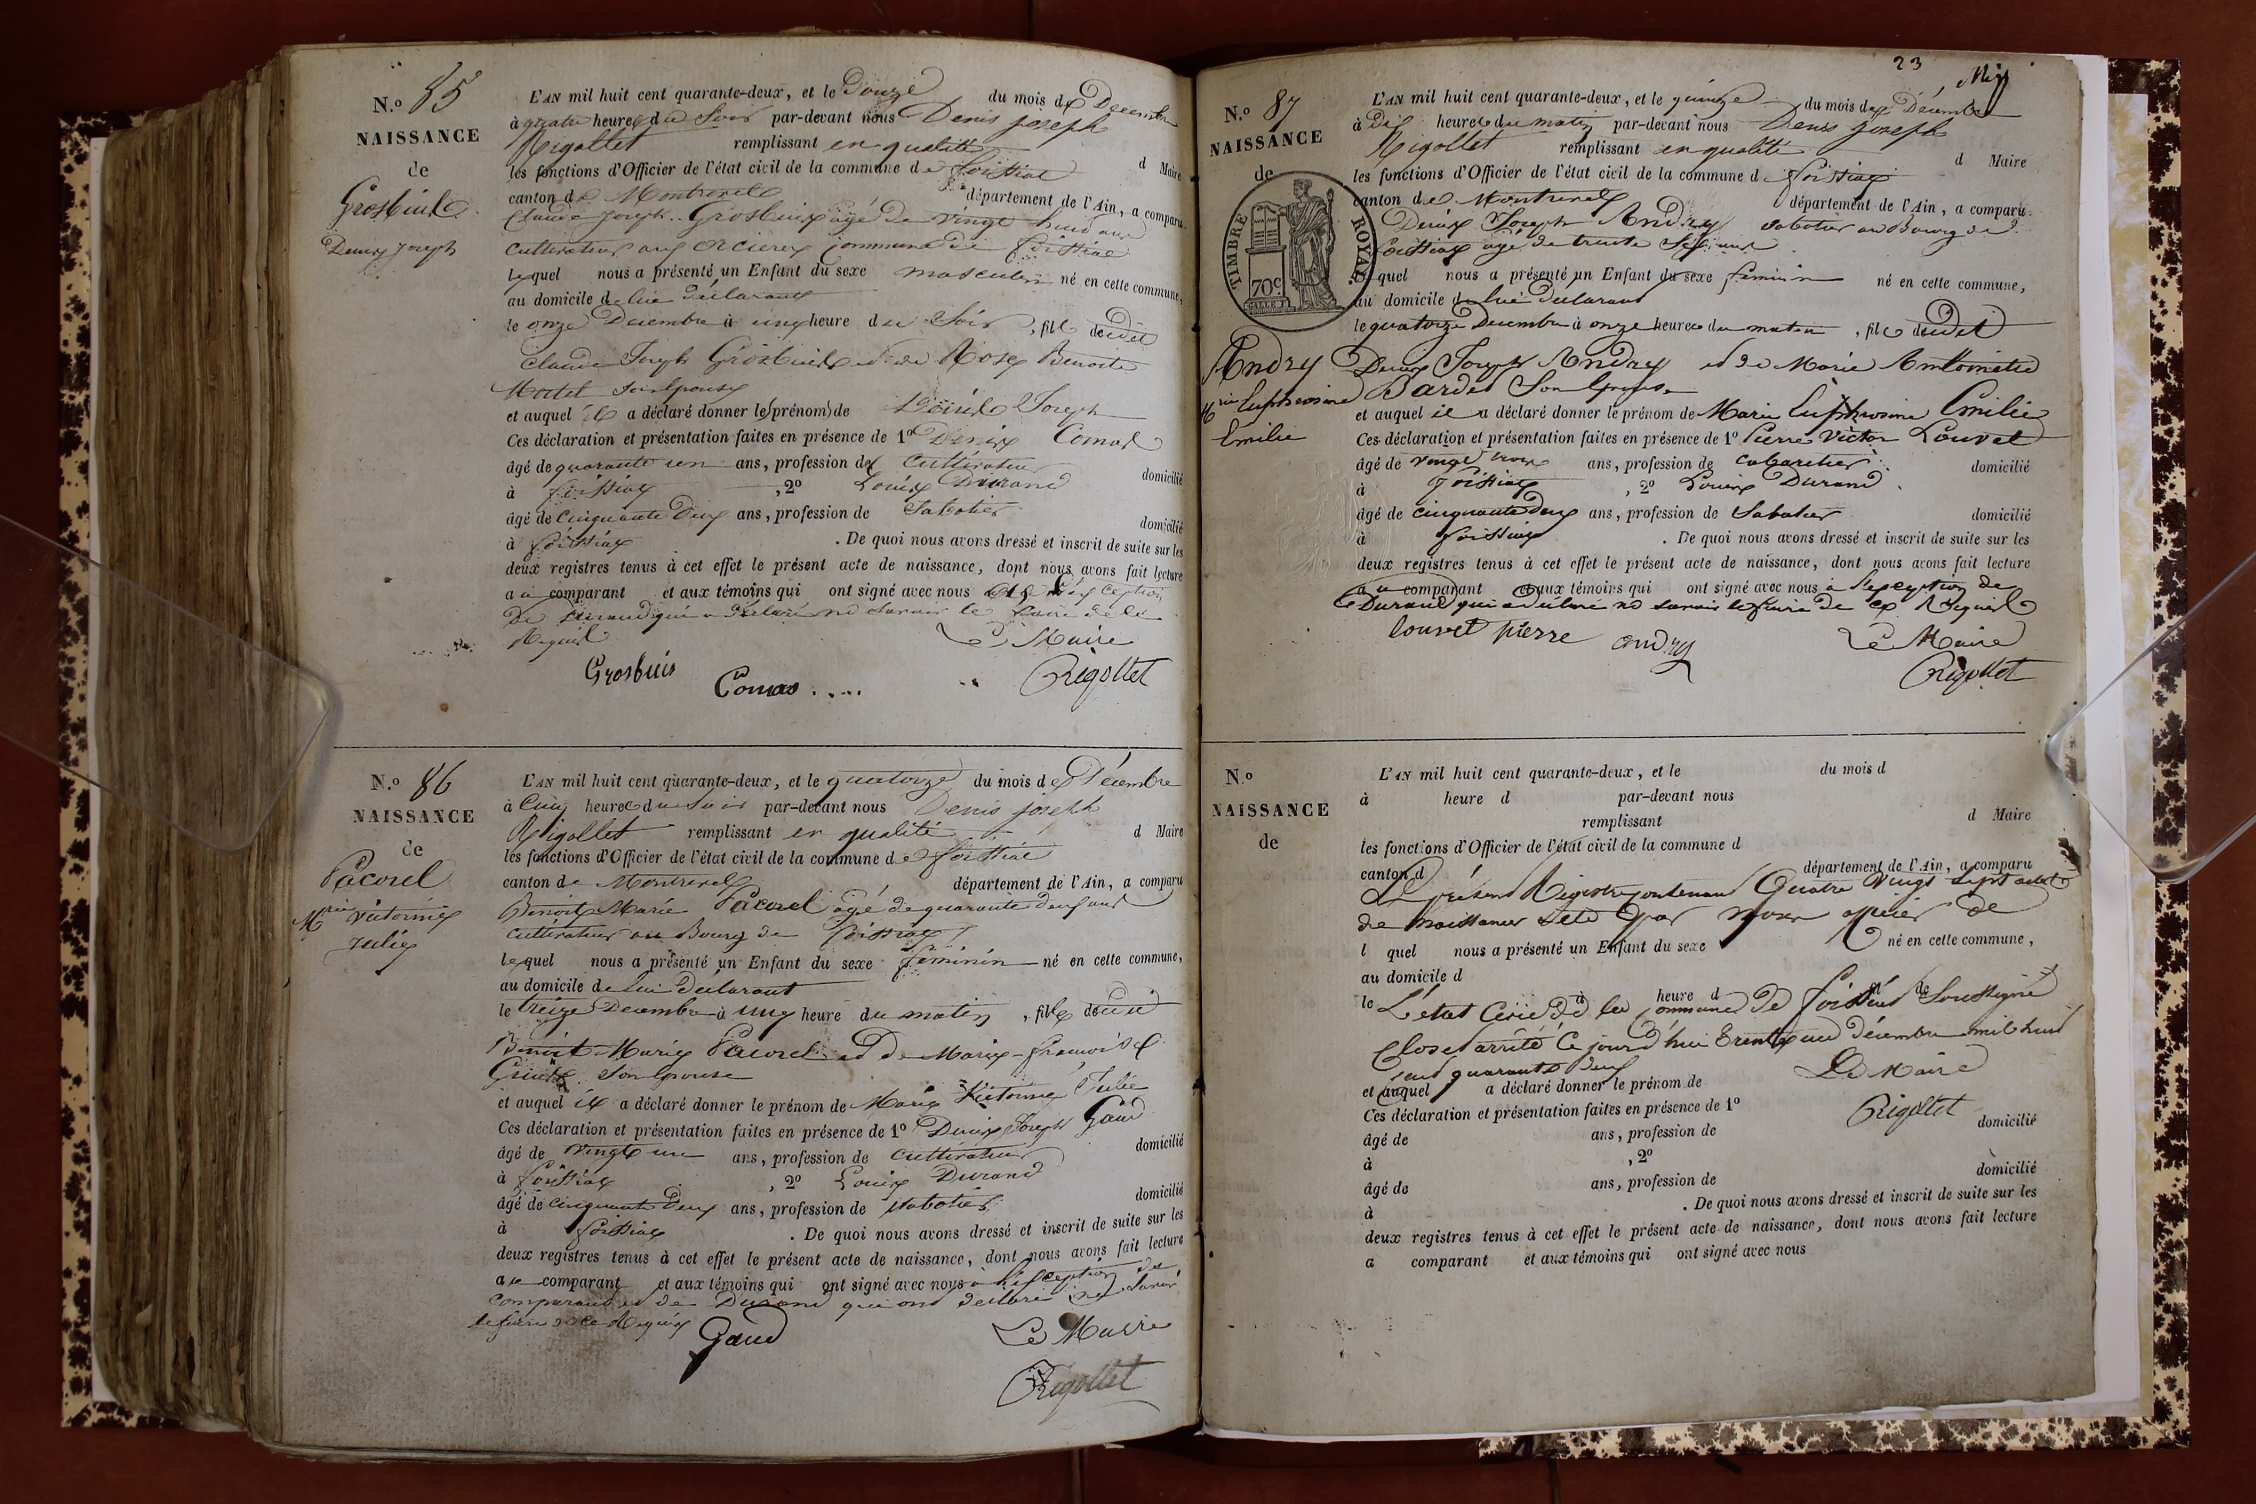 N.o 85
NAISSANCE
de
Grosbuis
Denis Joseph
L'AN mil huit cent quarante-deux, et le Douze du mois de Décembre
à quatre heures du Soir par-devant nous Denis joseph
Rigollet remplissant en qualité d Maire
les fonctions d'Officier de l'état civil de la commune de foissiat
canton de Montrevel département de l'Ain, a comparu
Claude Joseph Grosbuis agé de vingt huit ans
cultivateur aux commune de foissiat
lequel nous a présenté un Enfant du sexe masculin né en cette commune,
au domicile de lui déclarant
le onze Decembre à une heure du Soir, fils de dit
Claude Joseph Grosbuis et de Rose Benoite
son Epouse
et auquel il a déclaré donner le (prénom) de Joseph
Ces déclaration et présentation faites en présence de 1o Denis Comas
âgé de quarante un ans, profession de cultivateur domicilié
à foissiat, 2o Louis Durand
âgé de Cinquante Deux ans, profession de Sabotier domicilié
à foissiat. De quoi nous avons dressé et inscrit de suite sur les
deux registres tenus à cet effet le présent acte de naissance, dont nous avons fait lecture
au comparant et aux témoins qui ont signé avec nous à l'exception
de Durand qui a déclaré ne savoir le faire de ce
Requis
Le Maire
Grosbuis Comas Rigollet
N.o 86
NAISSANCE
de
Pacorel
Mrie Victorine
Julie
L'AN mil huit cent quarante-deux, et le quatorze du mois de Décembre
à Cinq heures du Soir par-devant nous Denis joseph
Rigollet remplissant en qualité d Maire
les fonctions d'Officier de l'état civil de la commune de foissiat
canton de Montrevel département de l'Ain, a comparu
Benoit Marie Pacorel agé de quarante deux ans
cultivateur au Bourg de foissiat
lequel nous a présenté un Enfant du sexe féminin né en cette commune,
au domicile de lui déclarant
le treize Decembre à une heure du matin, fille de dit
Benoit Marie Pacorel et de Marie françoise
son Epouse
et auquel il a déclaré donner le prénom de Marie Victorine Julie
Ces déclaration et présentation faites en présence de 1o Denis Joseph Gaud
âgé de vingt un ans, profession de cultivateur domicilié
à foissiat, 2o Louis Durand
âgé de cinquante deux ans, profession de sabotier domicilié
à foissiat. De quoi nous avons dressé et inscrit de suite sur les
deux registres tenus à cet effet le présent acte de naissance, dont nous avons fait lecture
au comparant et aux témoins qui ont signé avec nous à l'exception du
comparant et de Durand qui ont déclaré ne savoir
le faire de ce Requis
Gaud Le Maire
Rigollet
23
N.o 87
NAISSANCE
de
TIMBRE ROYAL
70c.
Andry
Mrie Euphrosine
Emilie
L'AN mil huit cent quarante-deux, et le quinze du mois de Décembre
à Dix heures du matin par-devant nous Denis joseph
Rigollet remplissant en qualité d Maire
les fonctions d'Officier de l'état civil de la commune d foissiat
canton de Montrevel département de l'Ain, a comparu
Denis Joseph Andry sabotier au Bourg de
foissiat agé de trente Six ans
lequel nous a présenté un Enfant du sexe féminin né en cette commune,
au domicile de lui déclarant
le quatorze Decembre à onze heures du matin, fille dudit
Denis Joseph Andry et de Marie Anttoinette
Bardet Son Epouse
et auquel il a déclaré donner le prénom de Marie Euphrosine Emilie
Ces déclaration et présentation faites en présence de 1o Pierre Victor Louvet
âgé de vingt trois ans, profession de cabaretier domicilié
à foissiat, 2o Louis Durand
âgé de cinquante deux ans, profession de Sabotier domicilié
à foissiat. De quoi nous avons dressé et inscrit de suite sur les
deux registres tenus à cet effet le présent acte de naissance, dont nous avons fait lecture
au comparant et aux témoins qui ont signé avec nous à l'exception de
Durand qui a déclaré ne savoir le faire de ce Requis
louvet pierre andry Le Maire
Rigollet
N.o
NAISSANCE
de
L'AN mil huit cent quarante-deux, et le du mois d
à heure d par-devant nous
remplissant d Maire
les fonctions d'Officier de l'état civil de la commune d
canton d département de l'Ain, a comparu
Le présent Registre contenant Quatre vingt sept actes
de naissances a été par nous officier de
l quel nous a présenté un Enfant du sexe né en cette commune,
au domicile d
le à heure d
L'état Civil de la commune de foissiat Soussigné
Clos et arrêté Ce jour d'hui trente un décembre mil huit
cent quarante Deux Le Maire
et auquel a déclaré donner le prénom de
Ces déclaration et présentation faites en présence de 1o
Rigollet
âgé de ans, profession de domicilié
à , 2o
âgé de ans, profession de domicilié
à . De quoi nous avons dressé et inscrit de suite sur les
deux registres tenus à cet effet le présent acte de naissance, dont nous avons fait lecture
a comparant et aux témoins qui ont signé avec nous